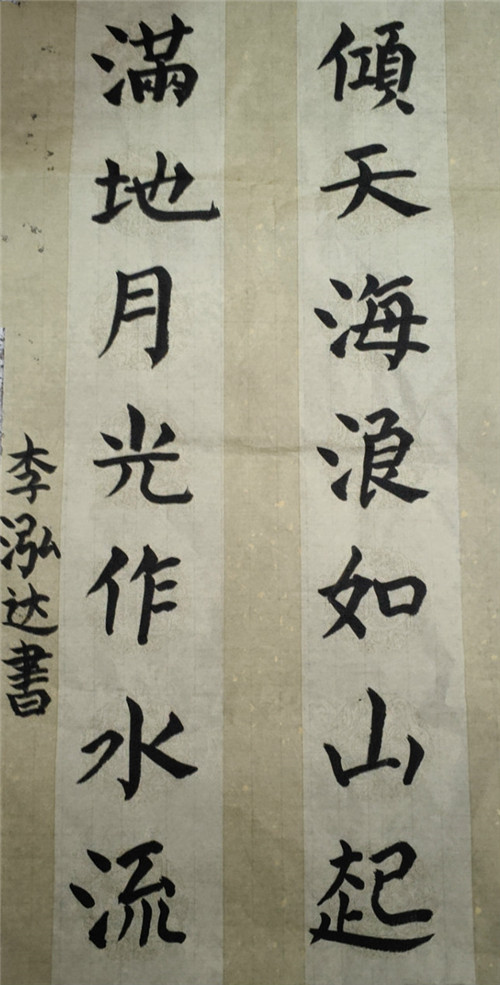 傾天海浪如山起
滿地月光作水流
李泓达書